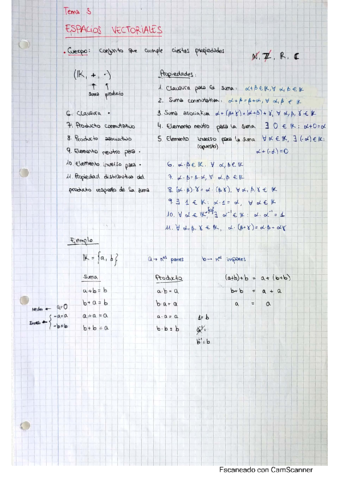 Tema 3
ESPACIOS VECTORIALES
• Cuerpo: conjunto que cumple ciertas propiedades
N, Z, R, C
(K, +, ·)
suma producto
Propiedades:
1. Clausura para la suma: α+β ∈ K, ∀ α, β ∈ K
2. Suma conmutativa: α+β = β+α, ∀ α, β ∈ K
3. Suma asociativa: α+(β+γ) = (α+β)+γ, ∀ α, β, γ ∈ K
4. Elemento neutro para la suma: ∃ 0 ∈ K: α+0=α
5. Elemento inverso para la suma: ∀ α ∈ K, ∃ (-α) ∈ K:
(opuesto) α+(-α)=0
6. Clausura ·
7. Producto conmutativo
8. Producto asociativo
9. Elemento neutro para ·
10. Elemento inverso para ·
11. Propiedad distributiva del
producto respecto de la suma
6. α·β ∈ K, ∀ α, β ∈ K
7. α·β = β·α, ∀ α, β ∈ K
8. (α·β)·γ = α·(β·γ), ∀ α, β, γ ∈ K
9. ∃ 1 ∈ K: α·1 = α, ∀ α ∈ K
10. ∀ α ∈ K ∃ α⁻¹ ∈ K: α·α⁻¹ = 1
11. ∀ α, β, γ ∈ K, α·(β+γ) = α·β + α·γ
Ejemplo
K = {a, b} a → nº pares b → nº impares
Suma
a+b = b
b+a = b
a+a = a
b+b = a
Producto
a·b = a
b·a = a
a·a = a
b·b = b
(a+b)+b = a+(b+b)
b+b = a+a
a = a
a=0
-a=a
-b=b
1=b
b⁻¹=b
Escaneado con CamScanner